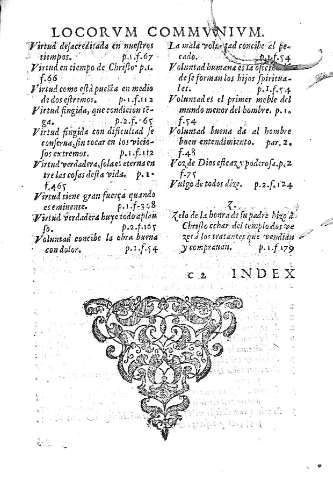 LOCORVM COMMVNIVM.
Virtud desacreditada en nuestros
tiempos. p.1.f.67
Virtud en tiempo de Christo p.1.
f.66
Virtud como està puesta en medio
de dos estremos. p.1.f.112
Virtud fingida, que condicion ten-
ga. p.2.f.165
Virtud fingida con dificultad se
conserua, sin tocar en los vicio-
sos extremos. p.1.f.112
Virtud verdadera, sola es eterna en
tre las cosas desta vida. p.1.
f.465
Virtud tiene gran fuerça quando
es eminente. p.1.f.308
Virtud verdadera huye todo aplau
so. p.2.f.165
Voluntad concibe la obra buena
con dolor. p.1.f.54
La mala voluntad concibe al pe-
cado. p.1.f.54
Voluntad humana es la oficina
de se forman los hijos spiritua-
les. p.1.f.54
Voluntad es el primer moble del
mundo menor del hombre. p.1.
f.54
Voluntad buena da al hombre
buen entendimiento. par.2.
f.48
Voz de Dios eficaz y poderosa. p.2
f.75
Vulgo de todos dize. p.2.f.124
Z.
Zelo de la honra de su padre hizo à
Christo echar del templo los ve
zes à los tratantes que vendian
y comprauan. p.1.f.179
C 2 INDEX